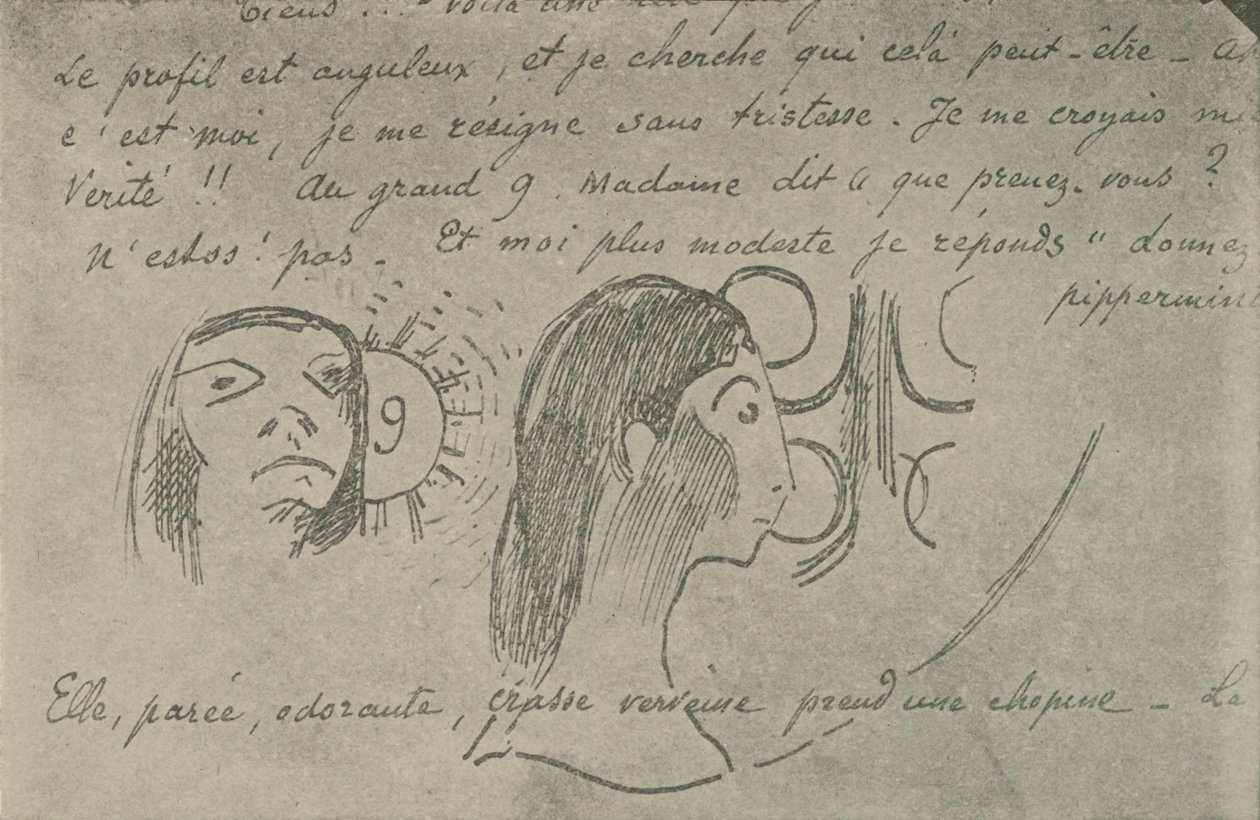 Tiens ... voilà une
Le profil est anguleux, et je cherche qui celà peut-être -
c'est moi, je me résigne sans tristesse. Je me croyais
Verité !! Au grand 9. Madame dit " que prenez-vous ?
N'estos! pas - Et moi plus modeste je réponds " donnez
pippermin
9
Elle, parée, odorante, crasse verveine prend une chopine - Le